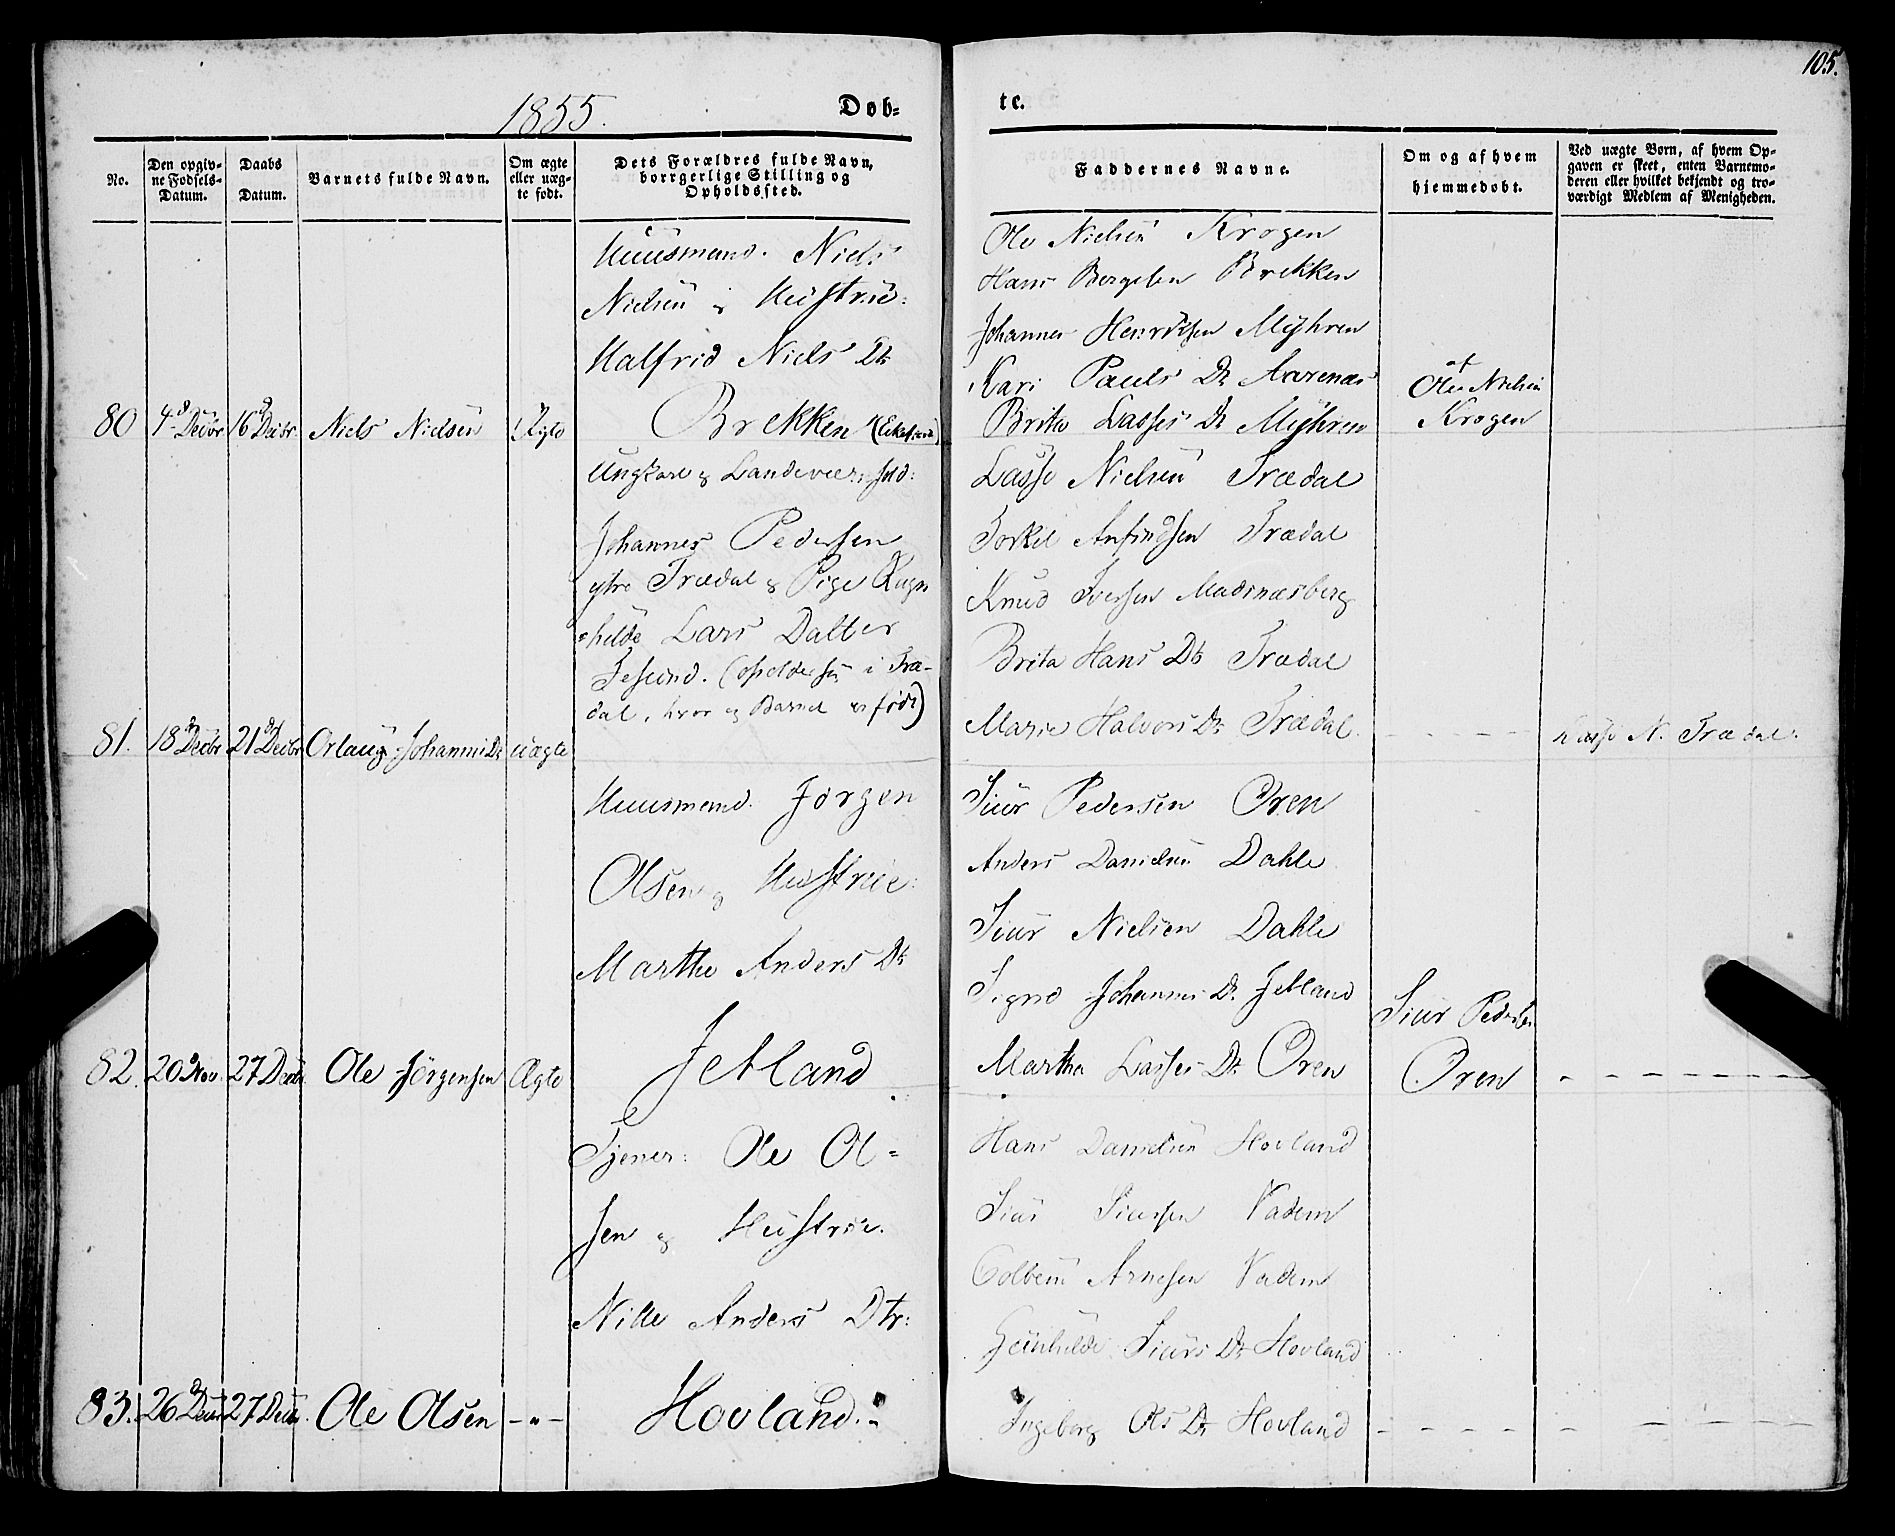 105.
1855.
Døb=
te.
No.
Den opgiv-
ne Fødsels-
Datum.
Daabs
Datum.
Barnets fulde Navn.
Om ægte
eller uæg-
te født.
Dets Forældres fulde Navn,
borrgerlige Stilling og
Opholdssted.
Faddernes Navne.
Om og af hvem
hjemmedøbt.
Ved uægte Børn, af hvem Op-
gaven er skeet, enten Barnemo-
deren eller hvilket bekjendt og tro-
værdigt Medlem af Menigheden.
80
4d Decbr.
16d Decbr.
Niels Nielsen
Ægte
Huusmand. Niels
Nielsen og Hustrue:
Halfrid Niels Dtr
Brekken
Ole Nielsen Krogen
Hans Bergesen Brekken
Johannes Henriksen Myhren
Kari Pauls Dr Aarenæs
Brita Lasses Dr Myhren
af
Ole Nielsen
Krogen
81.
18d Decbr
21d Decbr
Orlaug Johannis Dr
uægte
Ungkarl og Landeværnsold:
Johannes Pedersen
ytre Trædal og Pige Ragn
=hilde Lars Datter
i Træ-
dal, hvor og Barnet er født)
Lasse Nielsen Trædal
Torkel Anfindsen Trædal
Knud Iversen
Brita Hans Dtr Trædal
Marie Halvors Dr Trædal.
Lasse N. Trædal.
82.
20d Nov.
27 Decbr
Ole Jørgensen
Ægte
Huusmand. Jørgen
Olsen og Hustrue:
Marthe Anders Dtr
Jetland
Siur Pedersen Øren
Anders Danielsen Dahle
Siur Nielsen Dahle
Signe Johannes Dr. Jetland
Martha Lasses Dr Øren
Siur Pedersen
Øren
83.
26d Decbr
27 Decbr.
Ole Olsen
-"-
Tjener: Ole Ol=
sen og Hustrue.
Nille Anders Dtr:
Hovland.
Hans Danielsen Hovland
Siur Siursen Vadem
Colbein Arnesen Vadem
Gunhilde Siurs Dr Hovland
Ingeborg Ols Dr Hovland